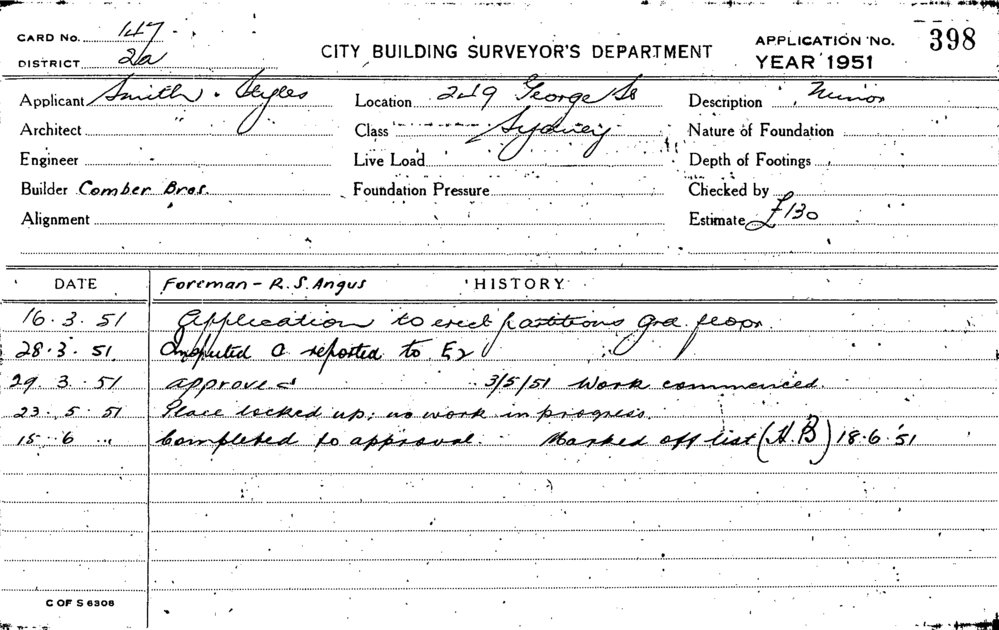 CARD No. 147
DISTRICT 2a
CITY BUILDING SURVEYOR'S DEPARTMENT
APPLICATION No. 398
YEAR 1951
Applicant Smith . Styles
Location 249 George St
Description Minor
Architect
Class Sydney
Nature of Foundation
Engineer
Live Load
Depth of Footings
Builder Comber Bros.
Foundation Pressure
Checked by
Alignment
Estimate £130
DATE Foreman - R. S. Angus HISTORY
16.3.51 Application to erect partitions Grd. floor.
28.3.51. reported to
29.3.51 approved 3/5/51 Work commenced.
23.5.51 Place locked up; no work in progress.
15.6 " Completed to approval. Marked off list (H.B) 18.6.51
C OF S 6306